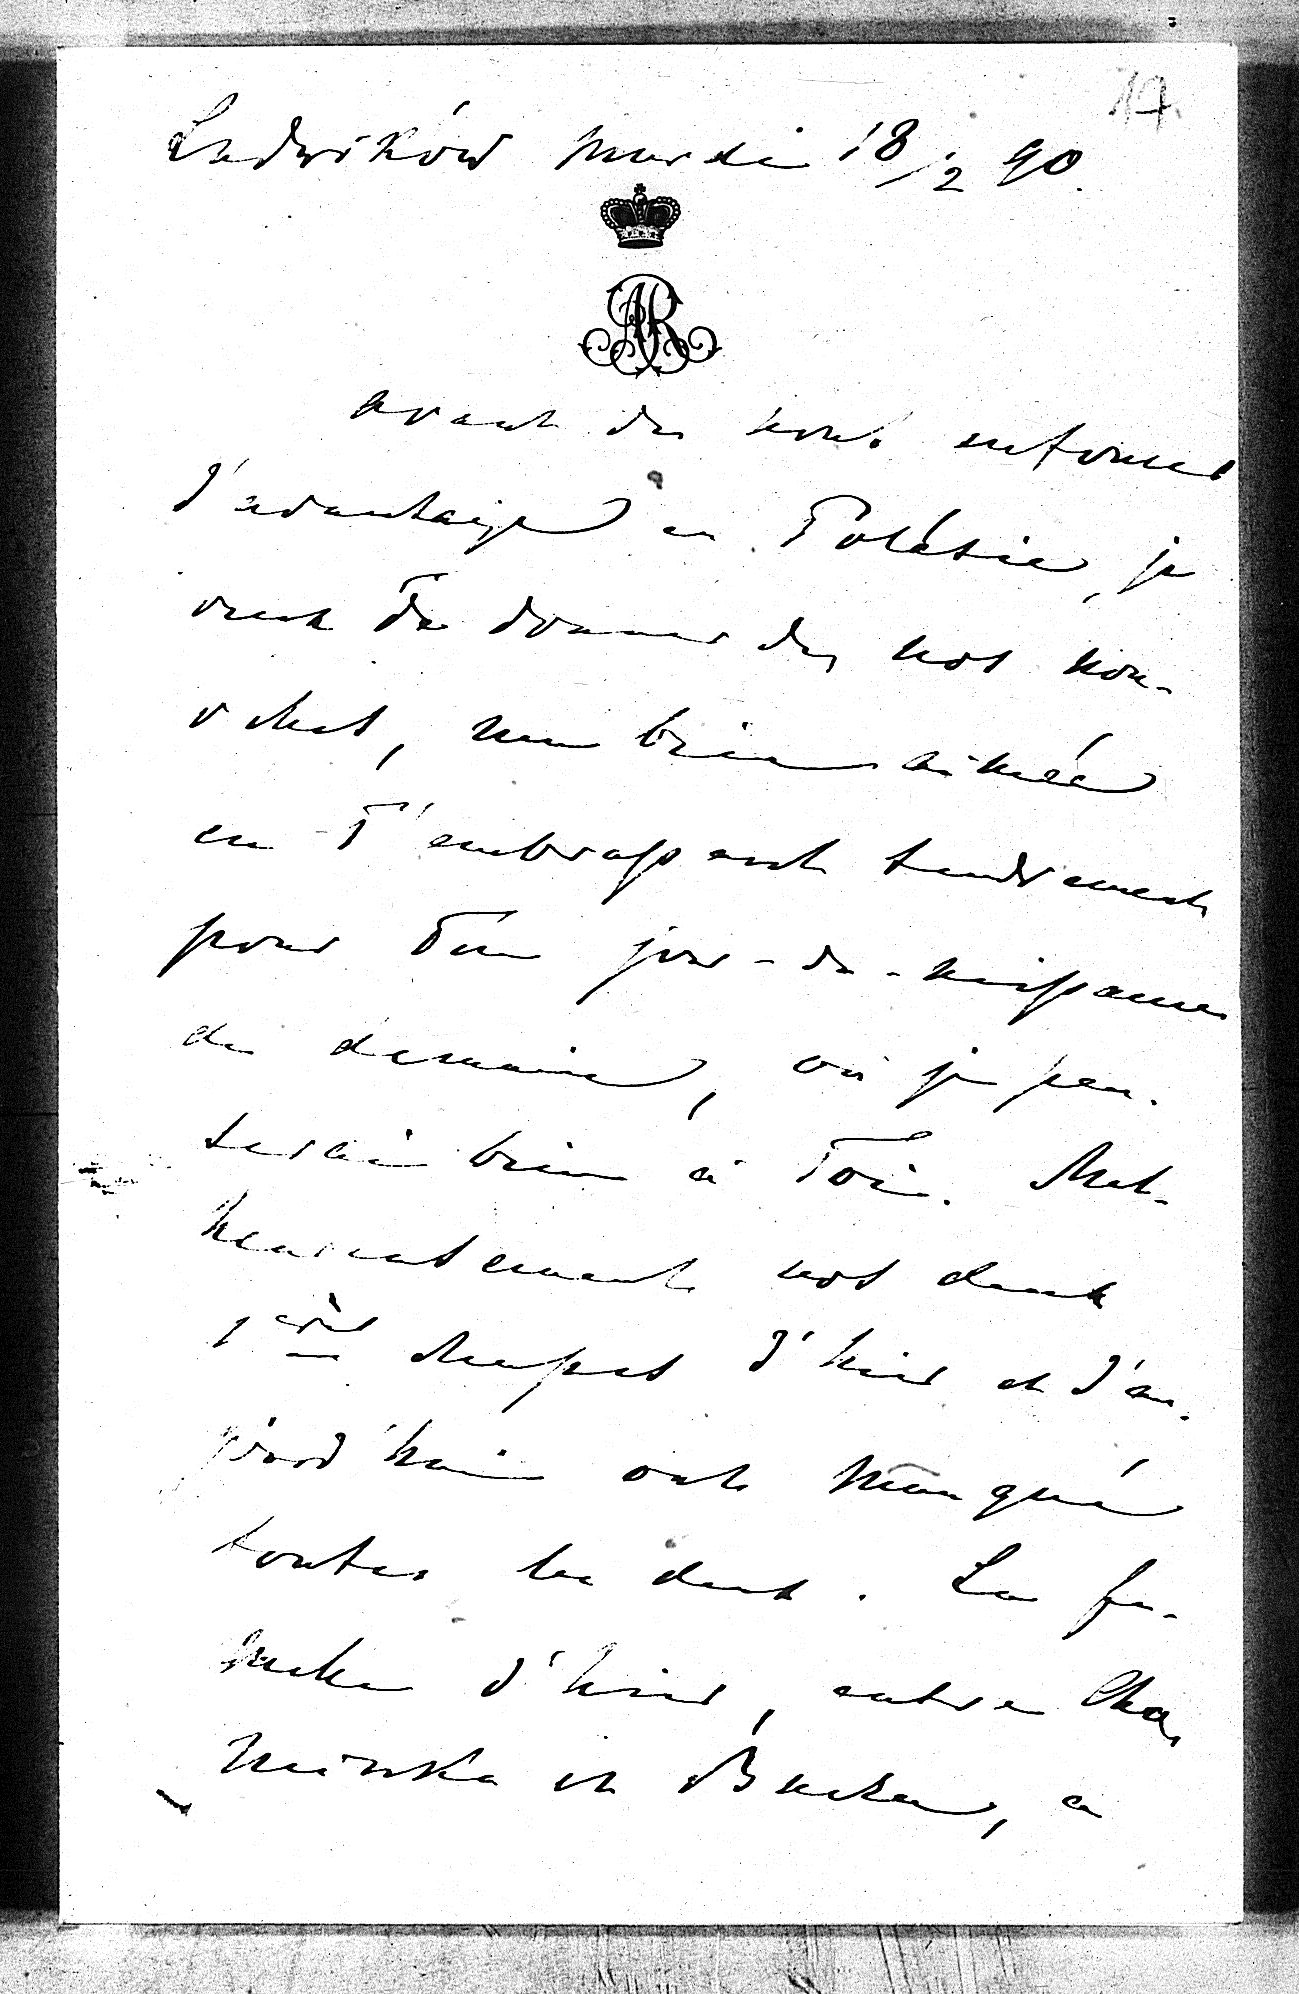 17.
Ludwików mardi 18/2 90.
AR
Avant de nous enfoncer
d'avantage en Polésie, je
veux Te donner de nos nou-
velles, ma bien aimée
en T'embrassant tendrement
pour Ton jour-de-naissance
de demain, où je pen-
serai bien à Toi. Mal-
heureusement nos deux
1ères chasses d'hier et d'au-
jourd'hui ont manqué
toutes les deux. La fa-
d'hier, entre
et